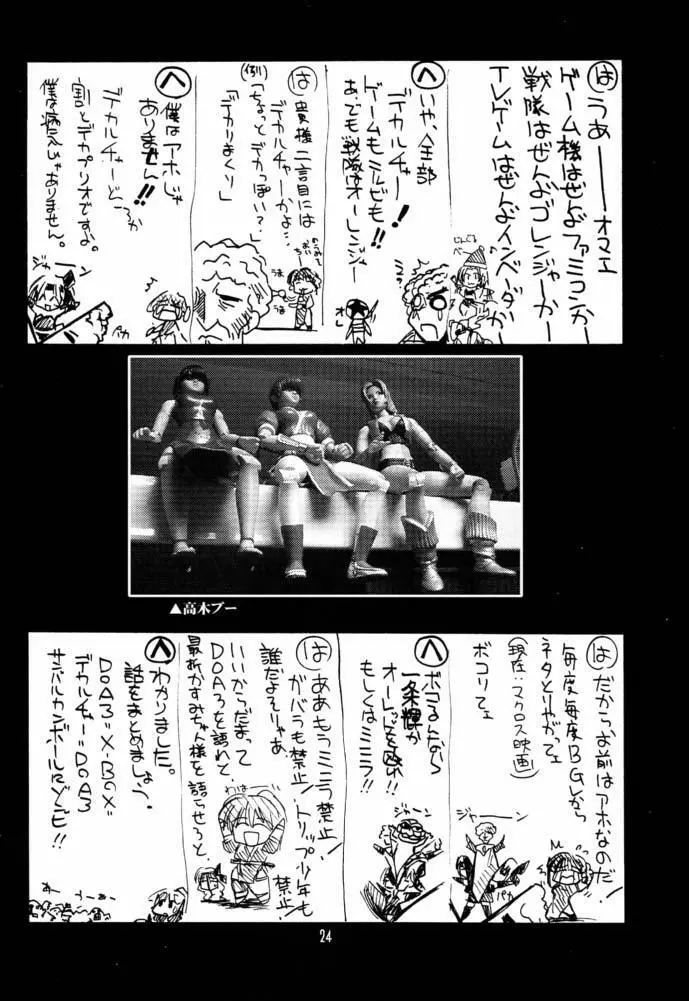 は
うあーーオマエ
ゲーム機はぜんぶファミコンかー
戦隊はぜんぶゴレンジャーかー
テレゲームはぜんぶインベーダーかー
へ
いや、全部
デカルチャー!
ゲームもミルピも!!
あ、でも戦隊はオーレンジャー
オレ
は
貴様二言目には
デカルチャーかよ…
(例)
「ちょっとデカっぽい?」
「デカりまくり」
へ
僕はアホじゃ
ありません!!
デカルチャーどころか
割とデカプリオですよ。
僕は病人じゃありません。
ジャーン
パカ
▲高木ブー
は
だからお前はアホなのだ!
毎度毎度BGVから
ネタとりやがってェ
(現在:マクロス映画)
ボコリてェ
ジャーン
パカ
へ
ボコるんなら
一条輝が
オーレッドを殴れ!!
もしくはミニラ!!
ジャーン
は
ああもうミニラ禁止!
ガバラも禁止!トリップ少年も禁止!
誰だよそりゃあ
いいからだまって
DOA3を語れて
最新かすみちゃん様を語らせろと
わは
へ
わかりました。
話をまとめましょう。
DOA3=X-BOX=
デカルチャー=DOA3
サンバルカンボールRでどど!!
24